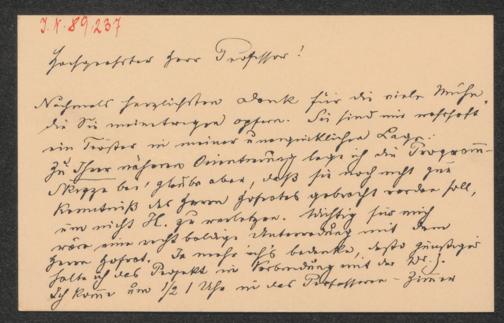 J.N. 89/237
Hochgeehrter Herr Professor!
Nochmals herzlichsten Dank für die viele Mühe,
die Sie meinetwegen opfern. Sie sind mir wahrhaft
ein Tröster in meiner unerquicklichen Lage.
Zu Ihrer näheren Orientierung lege ich die Programm-
Skizze bei, glaube aber, daß sie noch nicht zur
Kenntniß des Herrn Hofrates gebracht werden soll,
um nicht H. zu verletzen. Wichtig für mich
wäre eine recht baldige Unterredung mit dem
Herrn Hofrat. Je mehr ich's bedenke, desto günstiger
halte ich das Projekt in Verbindung mit der
Ich komme um 1/2 1 Uhr in das Professoren-Zimmer